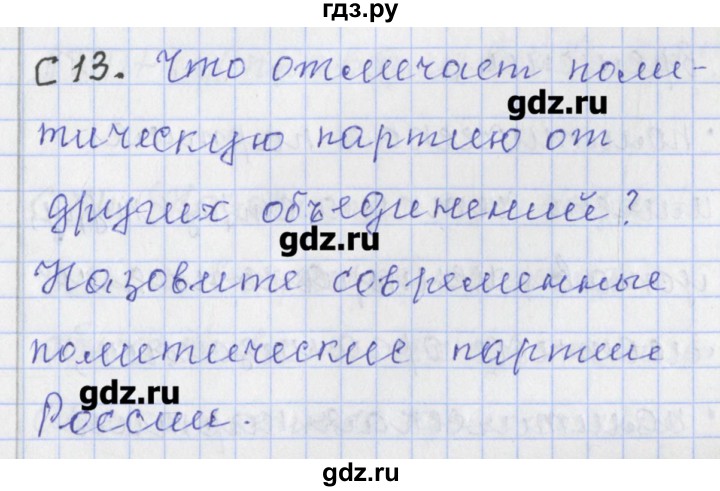 гдз.ру
С 13. Что отличает поли-
gdz.ru
тическую партию от
других объединений?
gdz.ru
Назовите современные
политические партии
gdz.ru
России.
gdz.ru